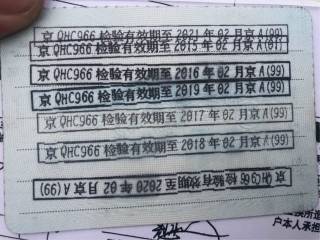 京QHC966检验有效期至2021年02月京A(99)
京QHC966检验有效期至2015年02月京A(01)
京QHC966检验有效期至2016年02月京A(99)
京QHC966检验有效期至2019年02月京A(99)
京QHC966检验有效期至2017年02月京A(99)
京QHC966检验有效期至2018年02月京A(99)
京QHC966检验有效期至2020年02月京A(99)
户本人承担